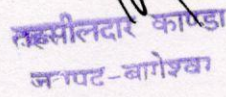 तहसीलदार काण्डा
जनपद-बागेश्वर